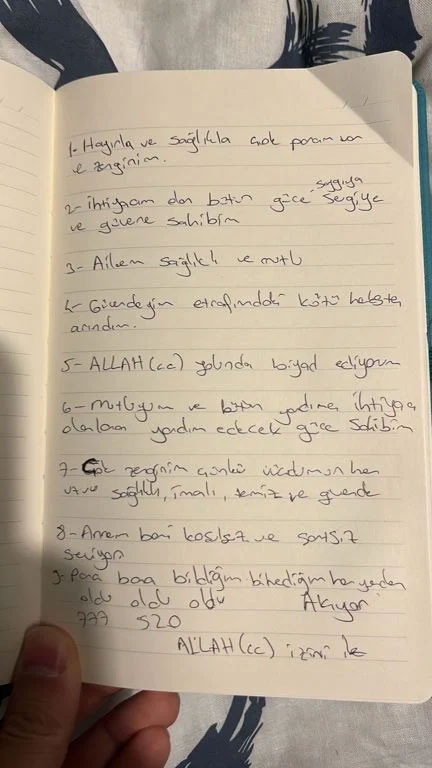 1- Hayırla ve sağlıkla çok param var
ve zenginim.
saygıya
2- ihtiyacım olan bütün güce sevgiye
ve güvene sahibim
3- Ailem sağlıklı ve mutlu
4- Güvendeyim etrafımdaki kötü herkesten
arındım.
5- ALLAH(cc) yolunda biyad ediyorum
6- mutluyum ve bütün yardıma ihtiyacı
olanlara yardım edecek güce sahibim
7- Çok zenginim çünkü vücdumun her
uzvu sağlıklı, imalı, temiz ve güvende
8- Annem beni koşulsuz ve şartsız
seviyor
9- Para bana bildiğim bilmediğim her yerden
oldu oldu oldu Akıyor
777 520
ALLAH(cc) izini ile